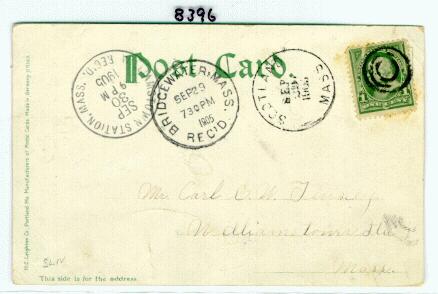 8396
Post Card
REC'D.
STATION, MASS.
SEP
30
9 PM
1905
BRIDGEWATER, MASS.
SEP 29
730PM
1905
REC'D.
SCOTLAND
MASS.
SEP
29
1905
Mr. Carl C. W.
Williamstown Sta
Mass
SLIV
This side is for the address.